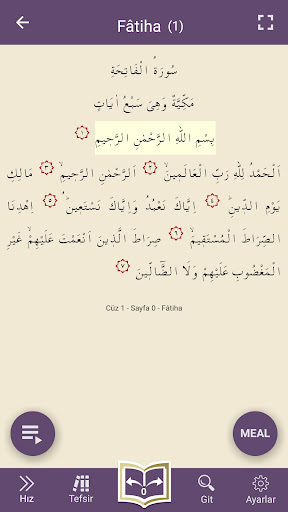 Fâtiha (1)
سُورَةُ الْفَاتِحَةِ
مَكِّيَّةٌ وَهِىَ سَبْعُ اٰيَاتٍ
بِسْمِ اللّٰهِ الرَّحْمٰنِ الرَّحٖيمِ ١
اَلْحَمْدُ لِلّٰهِ رَبِّ الْعَالَمٖينَۙ ٢ اَلرَّحْمٰنِ الرَّحٖيمِۙ ٣ مَالِكِ
يَوْمِ الدّٖينِؕ ٤ اِيَّاكَ نَعْبُدُ وَاِيَّاكَ نَسْتَعٖينُؕ ٥ اِهْدِنَا
الصِّرَاطَ الْمُسْتَقٖيمَۙ ٦ صِرَاطَ الَّذٖينَ اَنْعَمْتَ عَلَيْهِمْۙ غَيْرِ
الْمَغْضُوبِ عَلَيْهِمْ وَلَا الضَّٓالّٖينَ ٧
Cüz 1 - Sayfa 0 - Fâtiha
MEAL
Hız Tefsir 0 Git Ayarlar